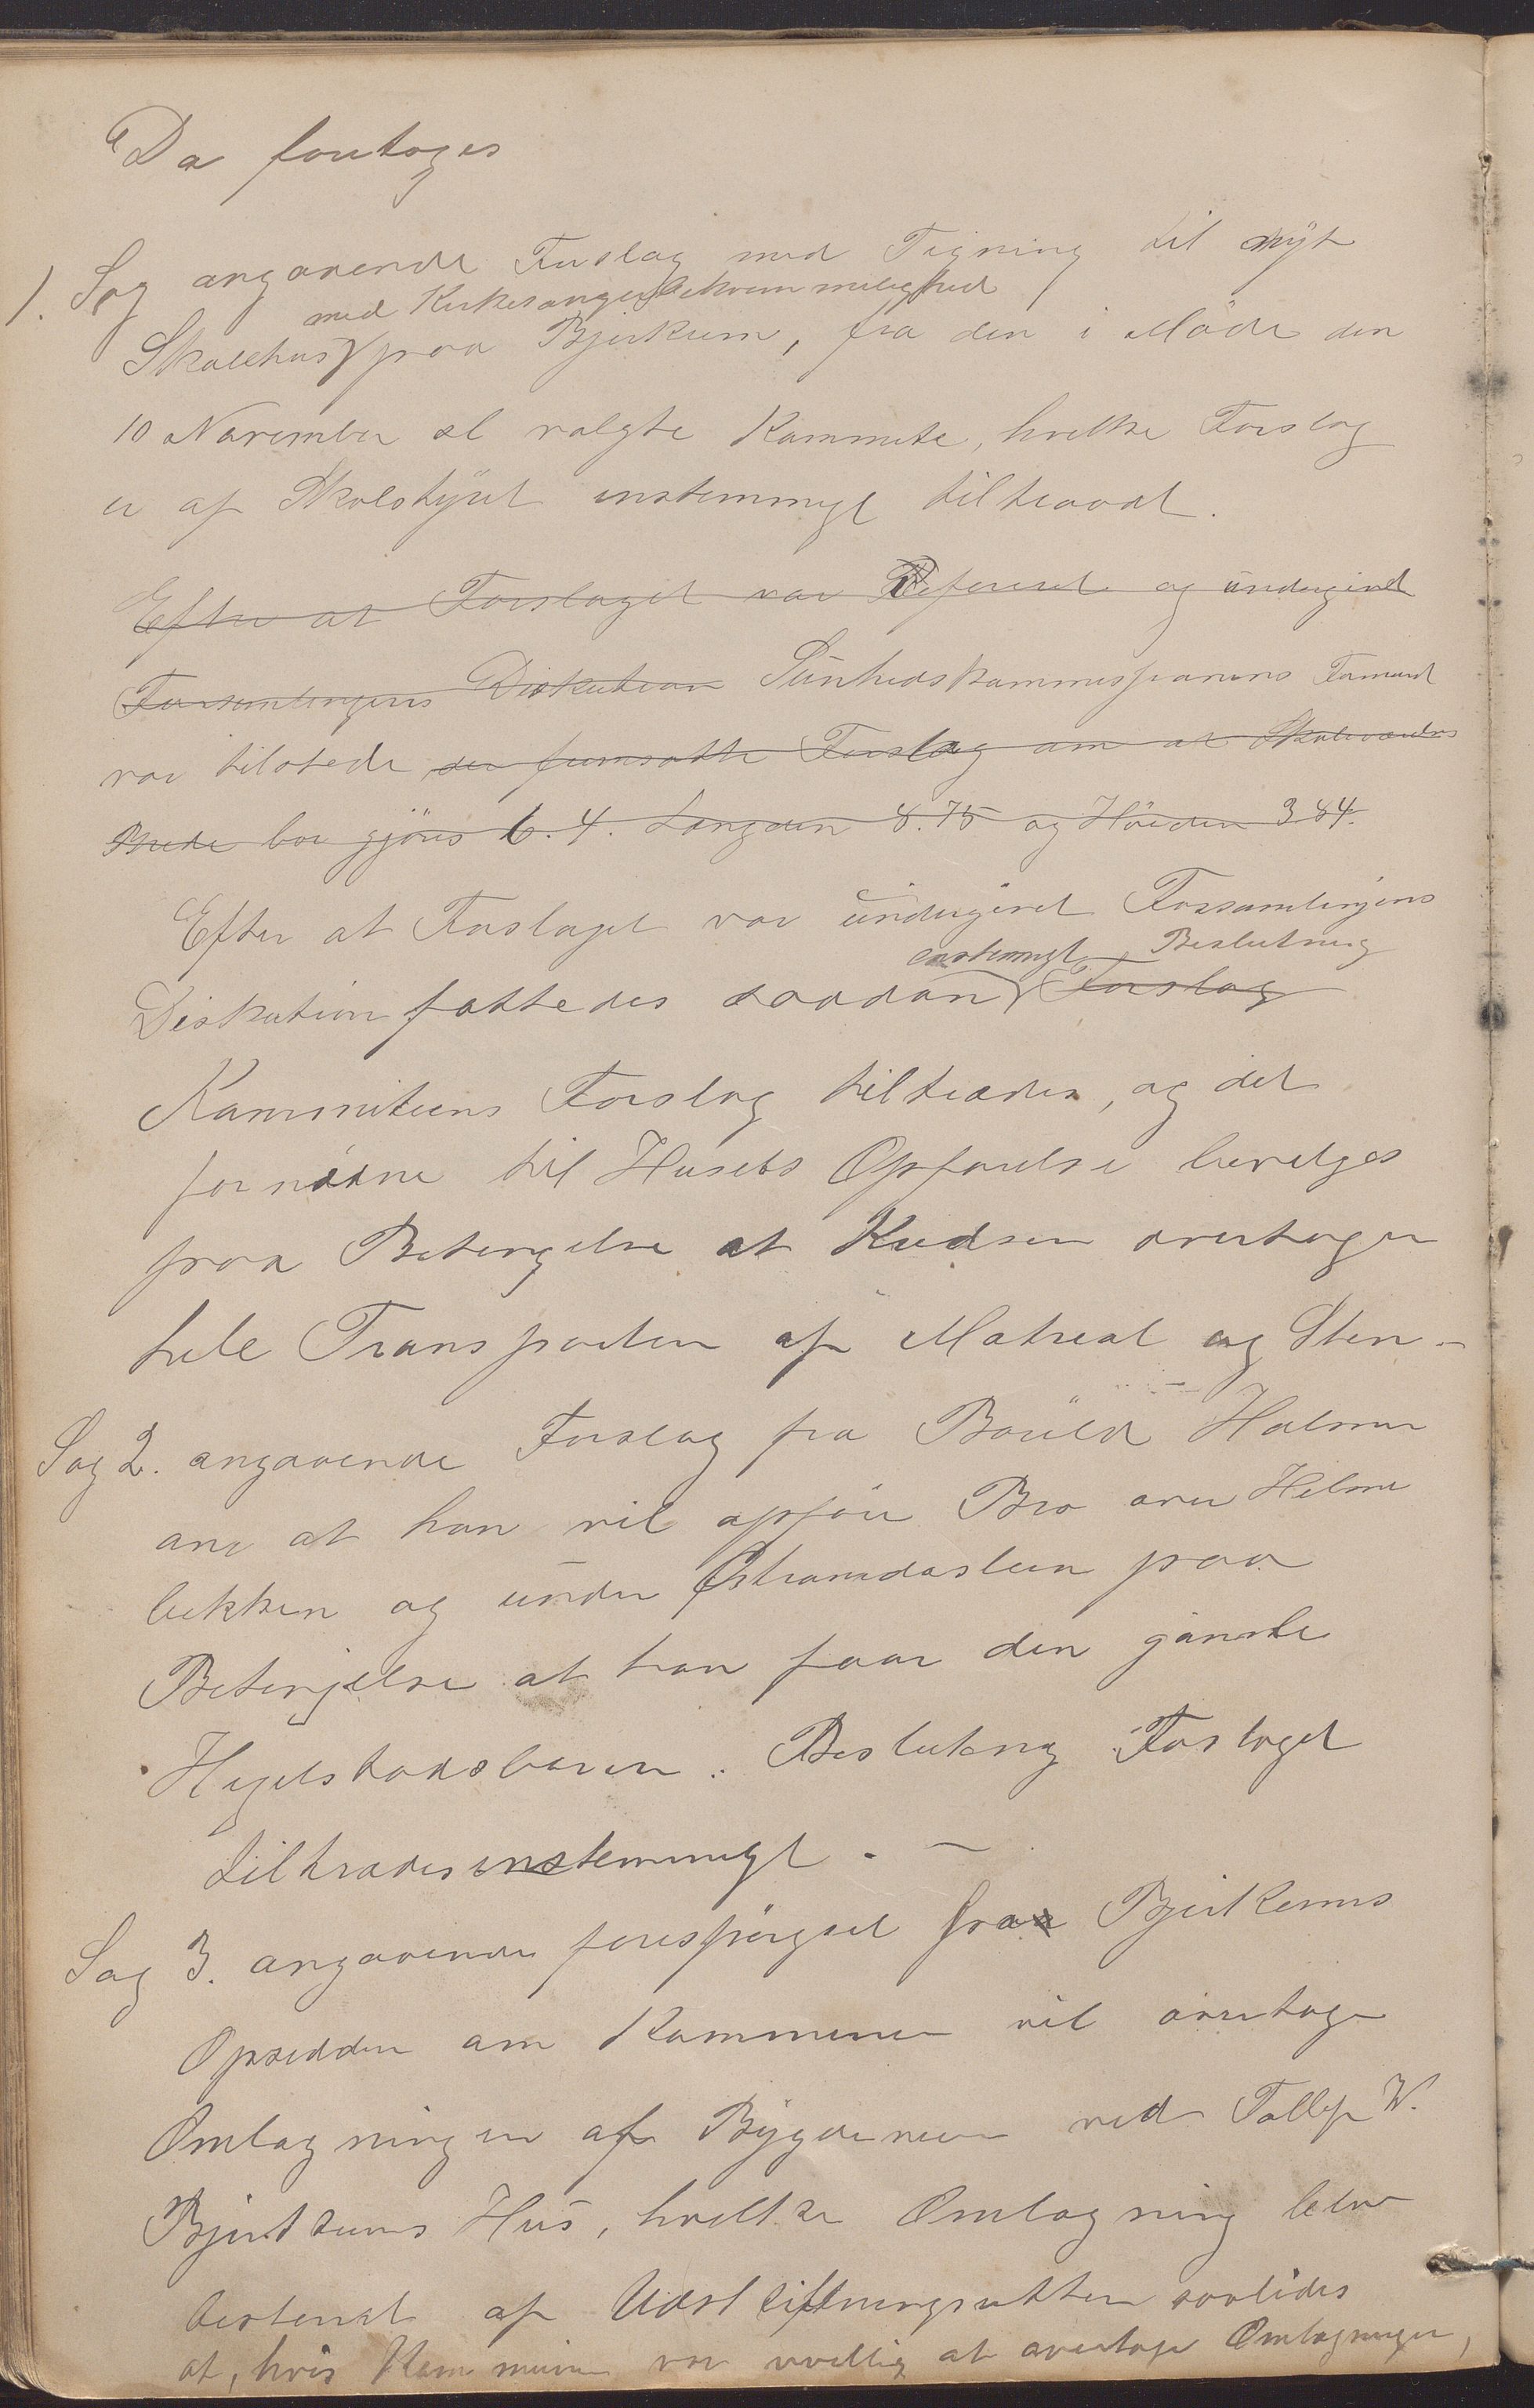 Da foretoges
1. Sag angaaende Forslag med Tegning til nyt
med Kirkesangerbekvemmelighed
Skolehus paa Bjerkrem, fra den i Möde den
10 November sl valgte Kommite, hvilke Forslag
er af Skolestyret enstemmigt tiltraadt.
Efter at Forslaget var Refereret og undergivet
Forsamlingens Diskution Sundhedskommissionens Formand
var tilstede der fremsatte Forslag om at Skoleværelses
Brede bør gjöres 6.4. Længden 8.75 og Höiden 384.
Efter at Forslaget var undergivet Forsamlingens
enstemmigt Beslutning
Diskution fattedes saadan Forslag
Kommiteens Forslag tiltrædes, og det
fornödne til Husets Opførelse bevilges
paa Betingelse at Kredsen overtager
hele Transporten af Matreal og Sten -
Sag 2. angaaende Forslag fra Bouild Holmen
om at han vil opföre Bro over Helme
bekken og under paa
Betingelse at han faar den gamle
Hegelstadsbroen. Beslutning Forslaget
tiltrædes enstemmigt. -
Sag 3. angaaende forespörgsel fraa Bjerkrems
Opsidder om Kommunen vil overtage
Omlægningen af Bygdeveien ved Tollef W.
Bjerkreims Hus, hvilke Omlægning blev
bestemt af Udskiftningsretten saaledes
at, hvis Kommunen var uvillig at overtage Omlægningen,